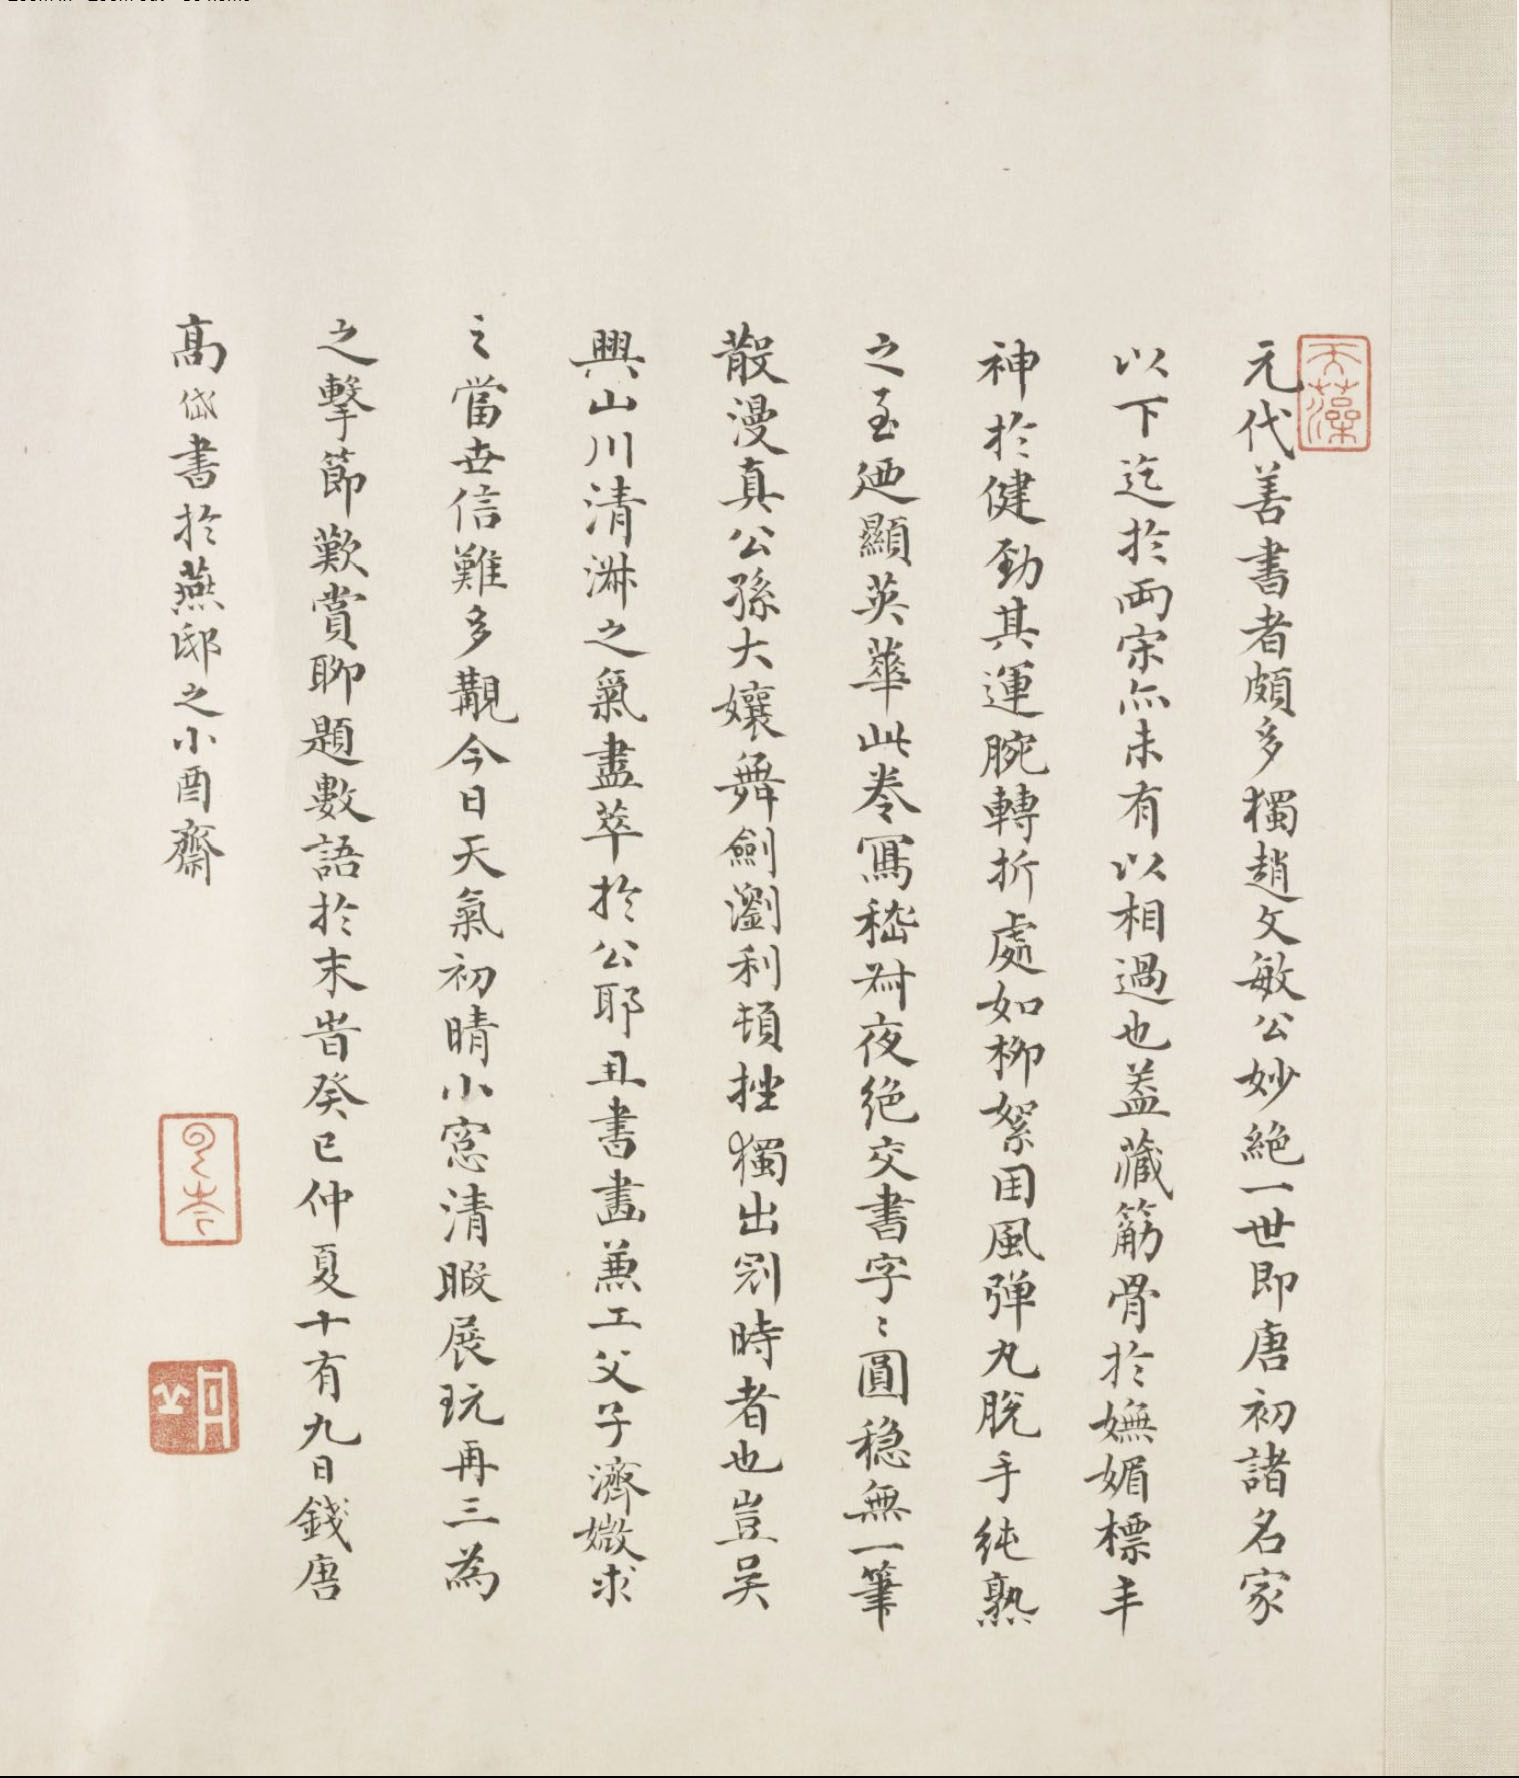 元代善書者頗多獨趙文敏公妙絕一世即唐初諸名家
以下迄於兩宋亦未有以相過也蓋藏筋骨於嫵媚標丰
神於健勁其運腕轉折處如柳絮因風彈丸脫手純熟
之至迺顯英華此卷寫嵇尗夜絕交書字〻圓穩無一筆
散漫真公孫大孃舞劍瀏利頓挫獨出冠時者也豈吴
興山川清淋之氣盡萃於公耶且書畫兼工父子濟媺求
之當世信難多覯今日天氣初晴小窓清暇展玩再三為
之擊節歎賞聊題數語於末旹癸巳仲夏十有九日錢唐
高岱書於燕邸之小酉齋
天藻